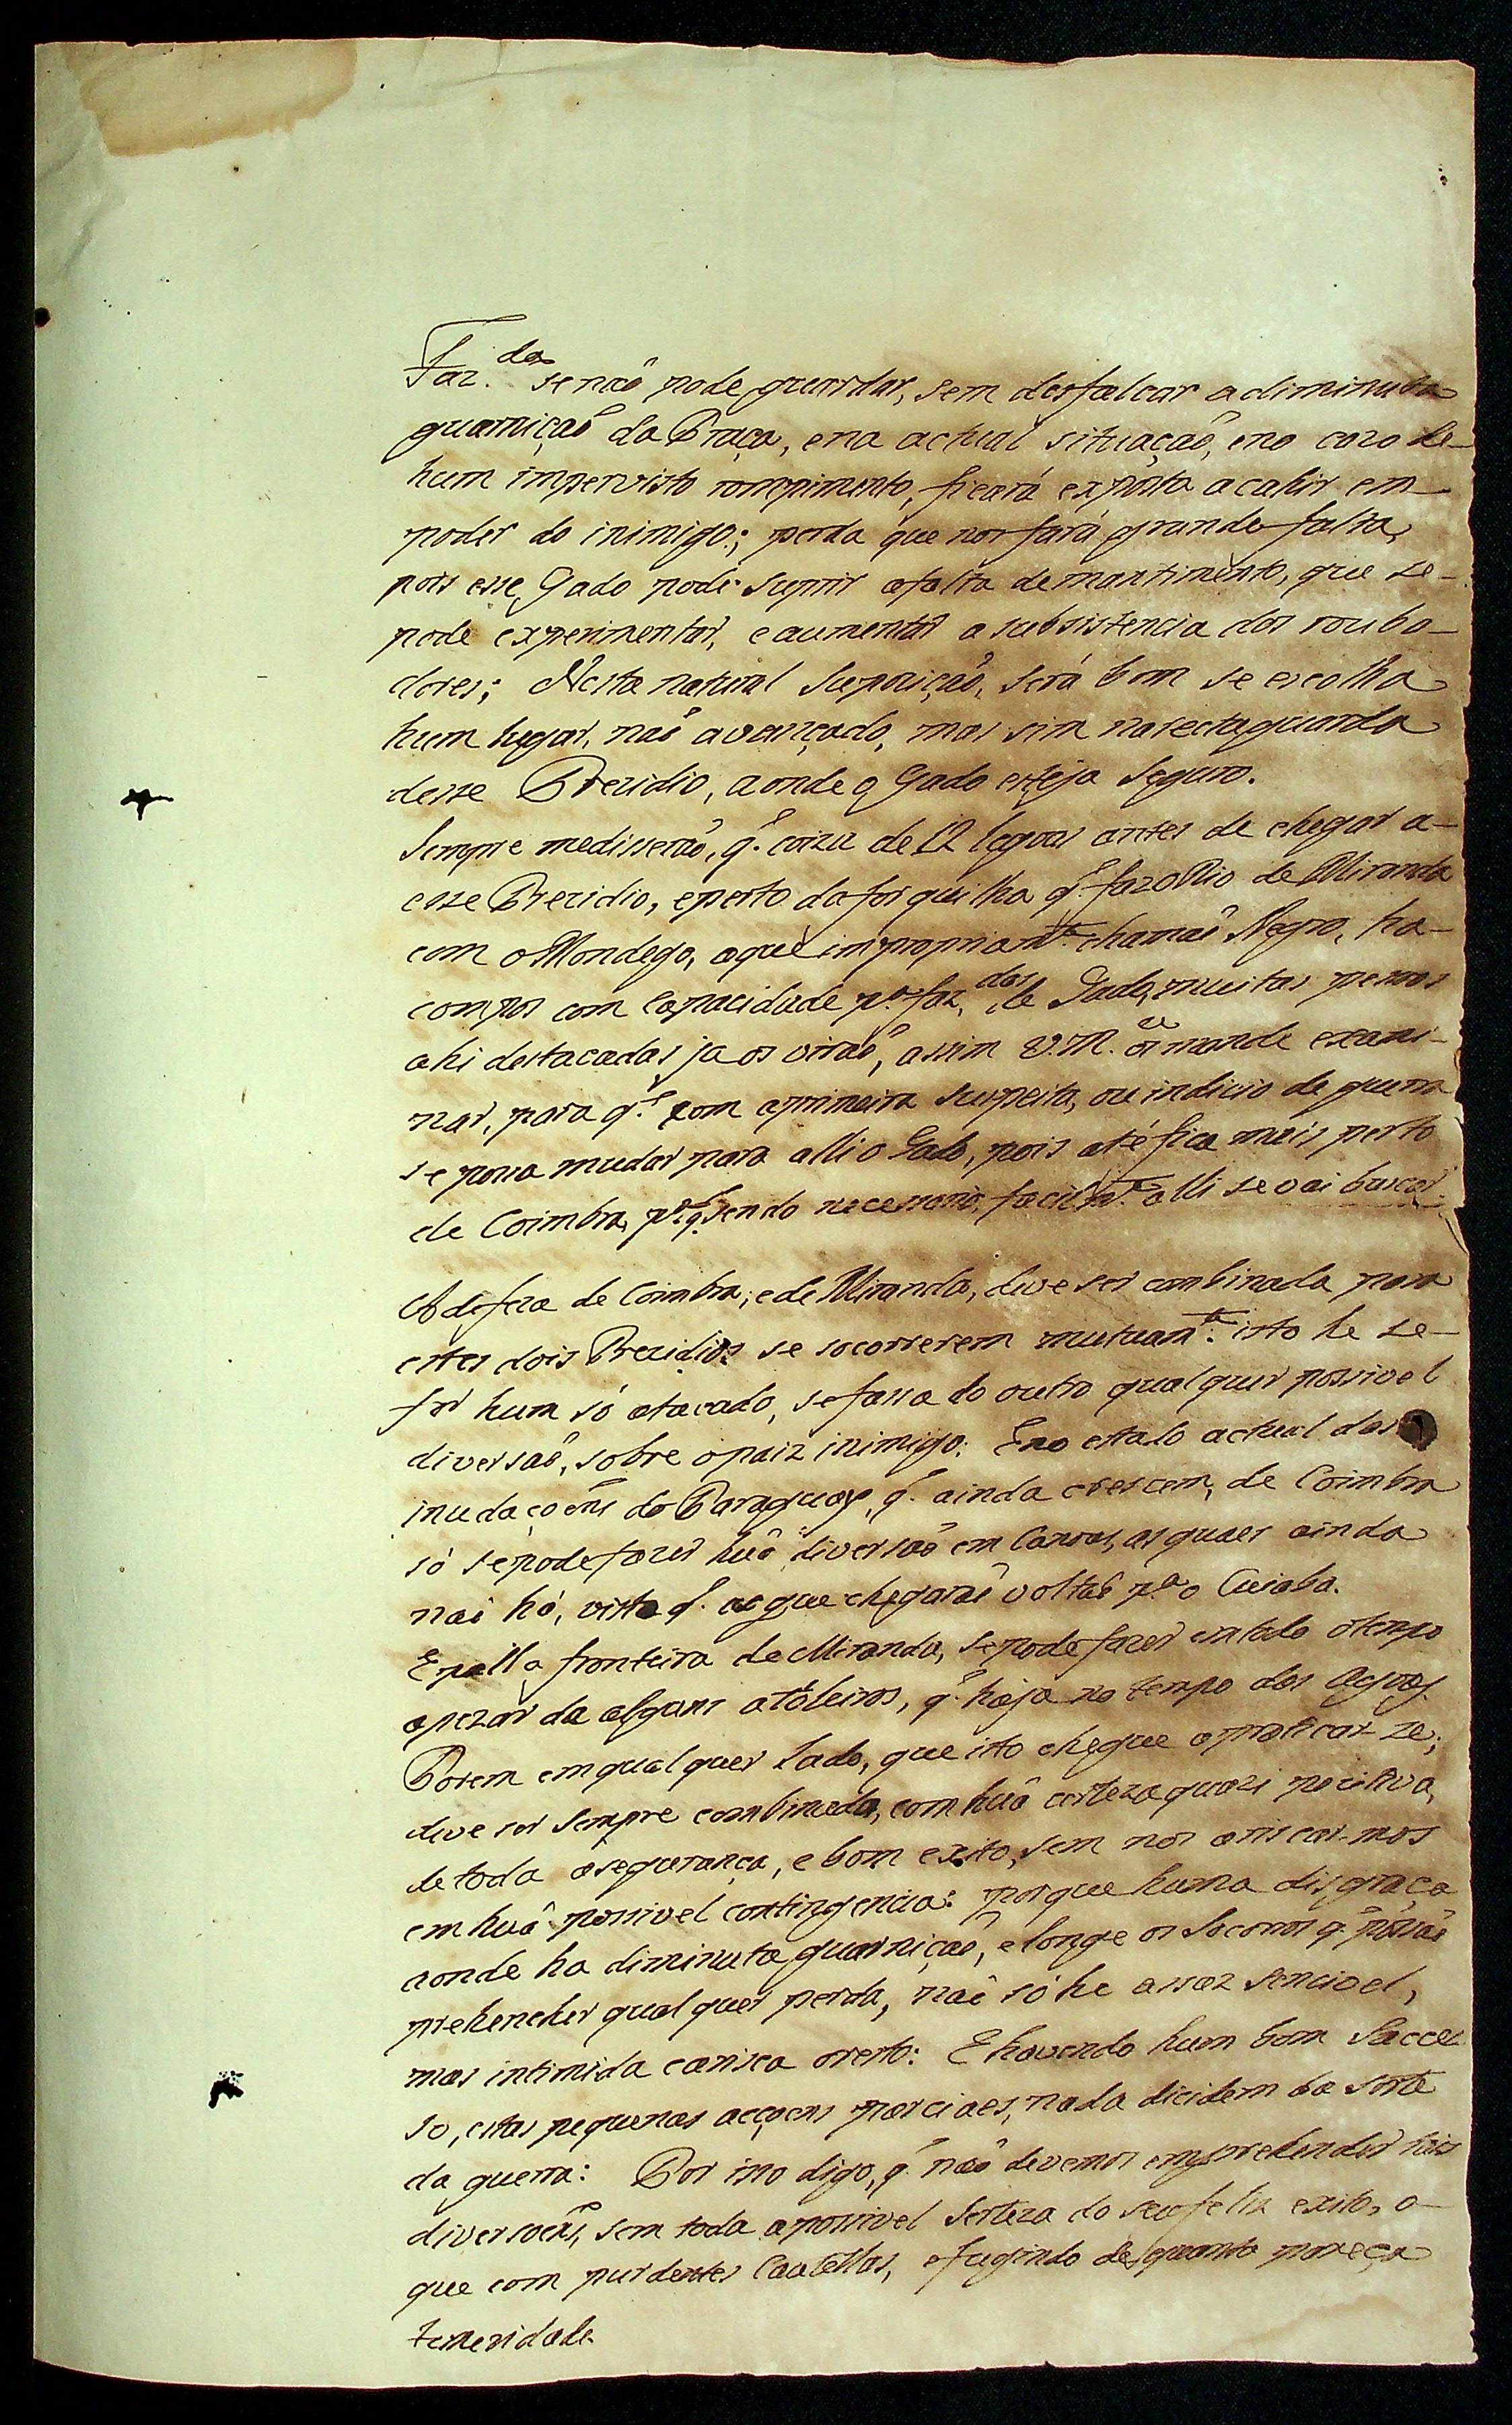 Faz.das se naõ pode guardar, sem desfalcar a diminuta
guarniçaõ da Praça, e na actual situaçaõ, e no cazo de
hum impervisto rompimento, ficará exposta a cahir em
poder do inimigo; perda que nos fará grande falta,
pois esse Gado pode suprir a falta de mantimento, que se
pode experimentar, e aumentar a subsistencia dos rouba-
dores; Nesta natural Supoziçaõ, será bom se escolha
hum lugar, naõ avançado, mas sim na rectaguarda
desse Prezidio, aonde o Gado esteja seguro.
Sempre me disseraõ, q. coiza de 12 legoas antes de chegar a
esse Prezidio, e perto da forquilha q. faz o Rio de Miranda
com o Mondego, a que impropriam.te chamaõ Negro, ha
campos com capacidade p.a faz.das de Gado, muitas pessoas
ahi destacadas ja os viraõ, assim V.M.ce os mande exami-
nar, para q. com a primeira suspeita, ou indicio de guerra
se possa mudar para alli o Gado, pois até fica mais perto
de Coimbra, p.a q. sendo necessario, facilm.te alli se vai buscar.
A defeza de Coimbra, e de Miranda, deve ser combinada para
estes dois Prezidios se socorrerem mutuam.te: isto he se
for hum só atacado, se fassa do outro qualquer possivel
diversaõ, sobre o paiz inimigo: E no estado actual das
inudaçoens do Paraguay, q. ainda crescem, de Coimbra
só se pode fazer huã diversaõ em Canoas, as quaes ainda
naõ há, visto q. as que chegaraõ voltaõ p.a o Cuiaba.
E pella fronteira de Miranda, se pode fazer em todo o tempo
apezar de alguns atôleiros, q. haja no tempo das Agoas.
Porem em qualquer lado, que isto chegue a praticar-se;
deve ser sempre combinada, com huã certeza quazi pozitiva,
de toda a segurança, e bom exito, sem nos ariscar-mos
em huã possivel contingencia: porque huma disgraça
aonde ha diminuta guarniçaõ, e longe os Socorros q. possaõ
prehencher qualquer perda, naõ só he assaz sencivel,
mas intimida e arisca o resto: E havendo hum bom Succes
so, estas pequenas acçoens parciaes, nada dicidem da sorte
da guerra: Por isso digo, q. naõ devemos emprehender tais
diversoens, sem toda a possivel Serteza do seu feliz exito, o
que com purdentes Cautellas, e fugindo de quanto pareça
temeridade.